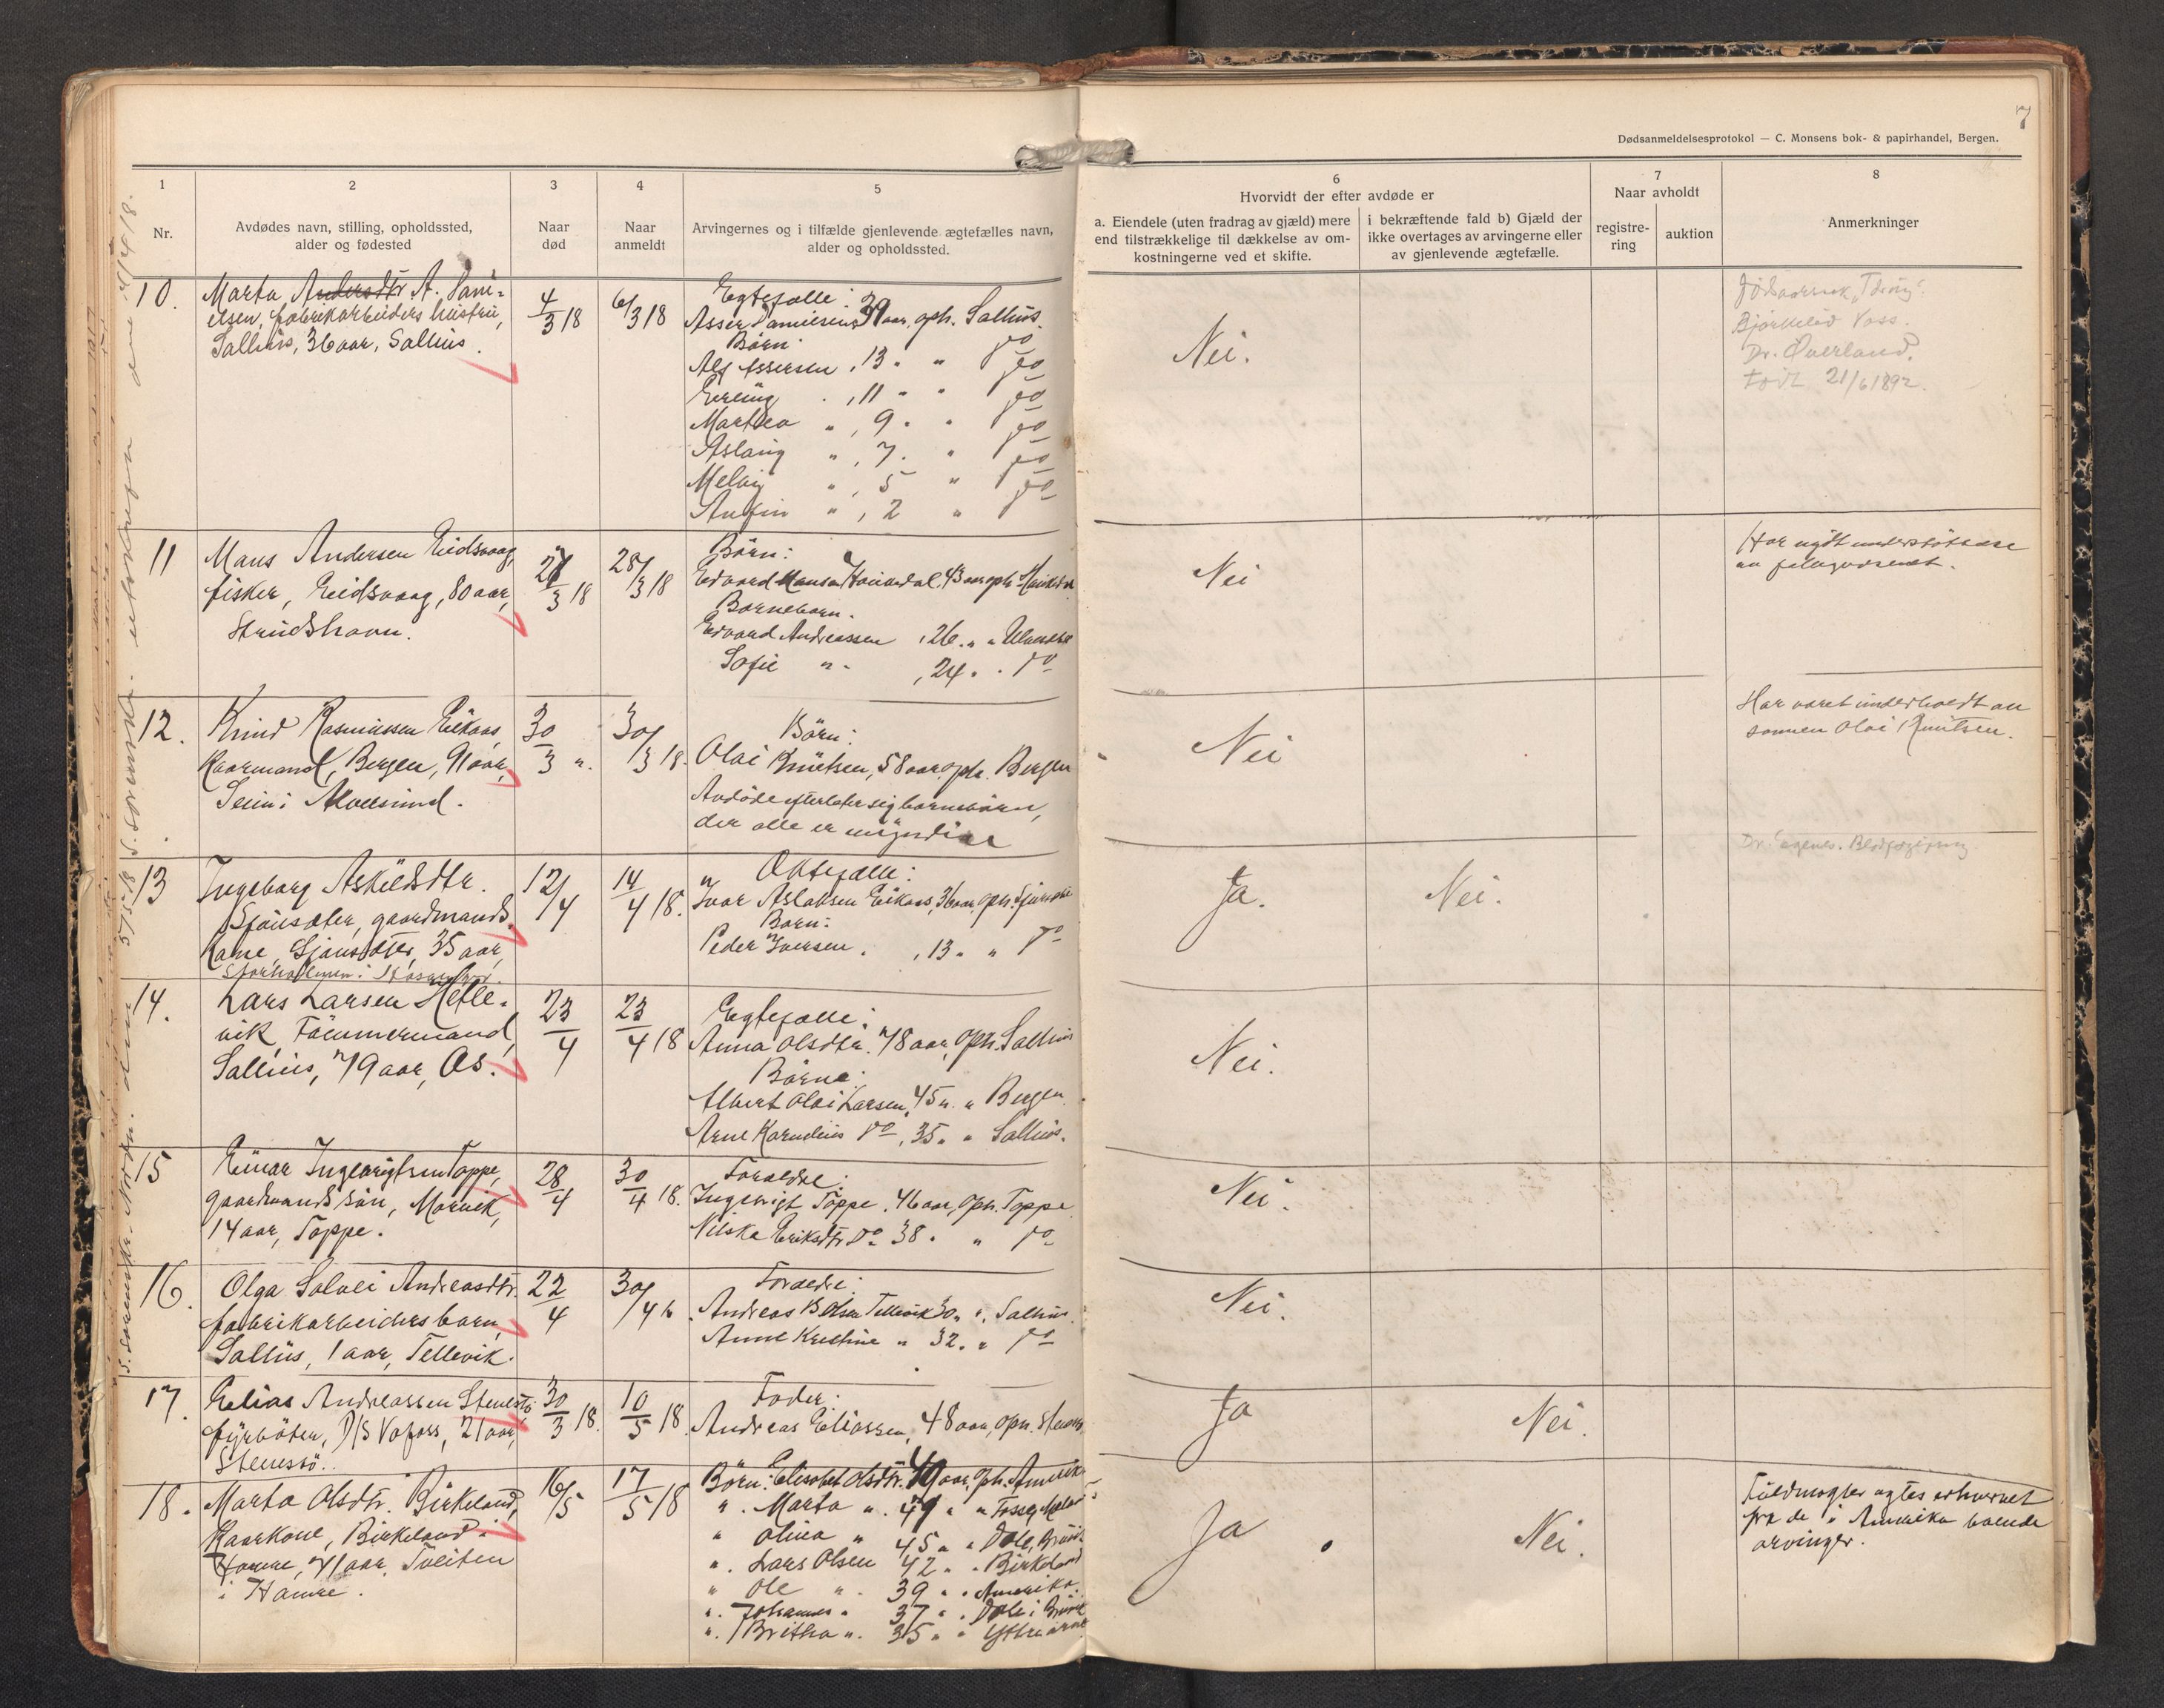 7
Dødsanmeldelsesprotokol — C. Monsens bok- & papirhandel, Bergen.
1
Nr.
2
Avdødes navn, stilling, opholdssted,
alder og fødested
3
Naar
død
4
Naar
anmeldt
5
Arvingernes og i tilfælde gjenlevende ægtefælles navn,
alder og opholdssted.
6
Hvorvidt der efter avdøde er
a. Eiendele (uten fradrag av gjæld) mere
end tilstrækkelige til dækkelse av om-
kostningerne ved et skifte.
i bekræftende fald b) Gjæld der
ikke overtages av arvingerne eller
av gjenlevende ægtefælle.
7
Naar avholdt
registre-
ring
auktion
8
Anmerkninger
10.
Marta Andersdtr A. Dani-
elsen, fabrikarbeiders hustru,
Salhus, 36 aar, Salhus.
4/3 18
6/3 18
Egtefælle:
Asser Danielsen 39 aar, oph. Salhus.
Börn:
Alf Assersen, 13 " " do
Erling " , 11 " " do
Marthea " , 9 " " do
Aslaug " , 7 " " do
" , 5 " do
" , 2 " do
Nei.
Bjørkelid Voss.
Dr. Øverland.
født 21/6 1892.
11
Mans Andersen Eidsvaag,
fisker, Eidsvaag, 80 aar,
Strudshavn.
27/3 18
28/3 18
Börn:
Edvard Mansen 43 aar oph.
Barnebarn.
Edvard Andreassen , 26 " "
Sofie " " , 24 " " do
Nei
Har nydt understöttelse
av
12.
Knud Rasmussen Eikaas,
Kaarmand, Bergen, 91 aar,
Seim i Alversund.
30/3 "
30/3 18.
Börn:
Olai Knutsen, 58 aar, oph. Bergen
Avdöde efterlater sig barnebörn,
der alle er myndige
Nei
Har været underholdt av
sønnen Olai Knutsen.
13
Ingeborg Askildsdtr.
Sjausæter, gaardmands
Kone, Sjausæter, 35 aar,
12/4
14/4 18.
Ektefælle:
Ivar Aslaksen Eikaas, 36 aar, oph.
Barn:
Peder Iversen , 13 " " do
Ja.
Nei.
14.
Lars Larsen Hetle-
vik, Tömmermand,
Salhus, 79 aar, Os.
23/4
23/4 18
Egtefælle:
Anna Olsdtr. 78 aar, oph. Salhus
Börn:
Albert Olai Larsen, 45 " " Bergen.
Arne Kornelius do, 35 " " Salhus.
Nei.
15
Einar Ingebrigtsen Toppe,
gaardmands sön, Morvik,
14 aar, Toppe.
28/4
30/4 18.
Forældre:
Ingebrigt Toppe, 46 aar, oph. Toppe
Nilska Eriksdtr do 38 " " do
Nei.
16.
Olga Solvei Andreasdtr.
fabrikarbeiders barn,
Salhus, 1 aar, Tellevik.
22/4
30/4 18
Forældre:
Andreas B. Olsen Tellevik 30 " " Salhus.
Anne Kristine " 32 " " do
Nei.
17.
Elias Andreassen Stensö,
fyrböter, D/S Vafoss, 21 aar,
Stensö.
30/3 18.
10/5 18.
Fader:
Andreas Eliassen, 48 aar, oph.
Ja
Nei.
18.
Marta Olsdtr. Birkeland,
Kaarkone, Birkeland i
Hamre, 71 aar, Tveiten
i Hamre.
16/5
17/5 18
Börn: Elisabet Olsdtr. aar, oph. Amerika
" Marta " 47 " "
" Olina " 45 " " Dale, Bruvik
" Lars Olsen 42 " " Birkeland
" Ole " 39 " " Amerika.
" Johannes " 37 " " Dale i Bruvik
" Britha " 35 " " Ytre Arne
Ja
Nei.
Fuldmagter agtes erhvervet
fra de i Amerika boende
arvinger.